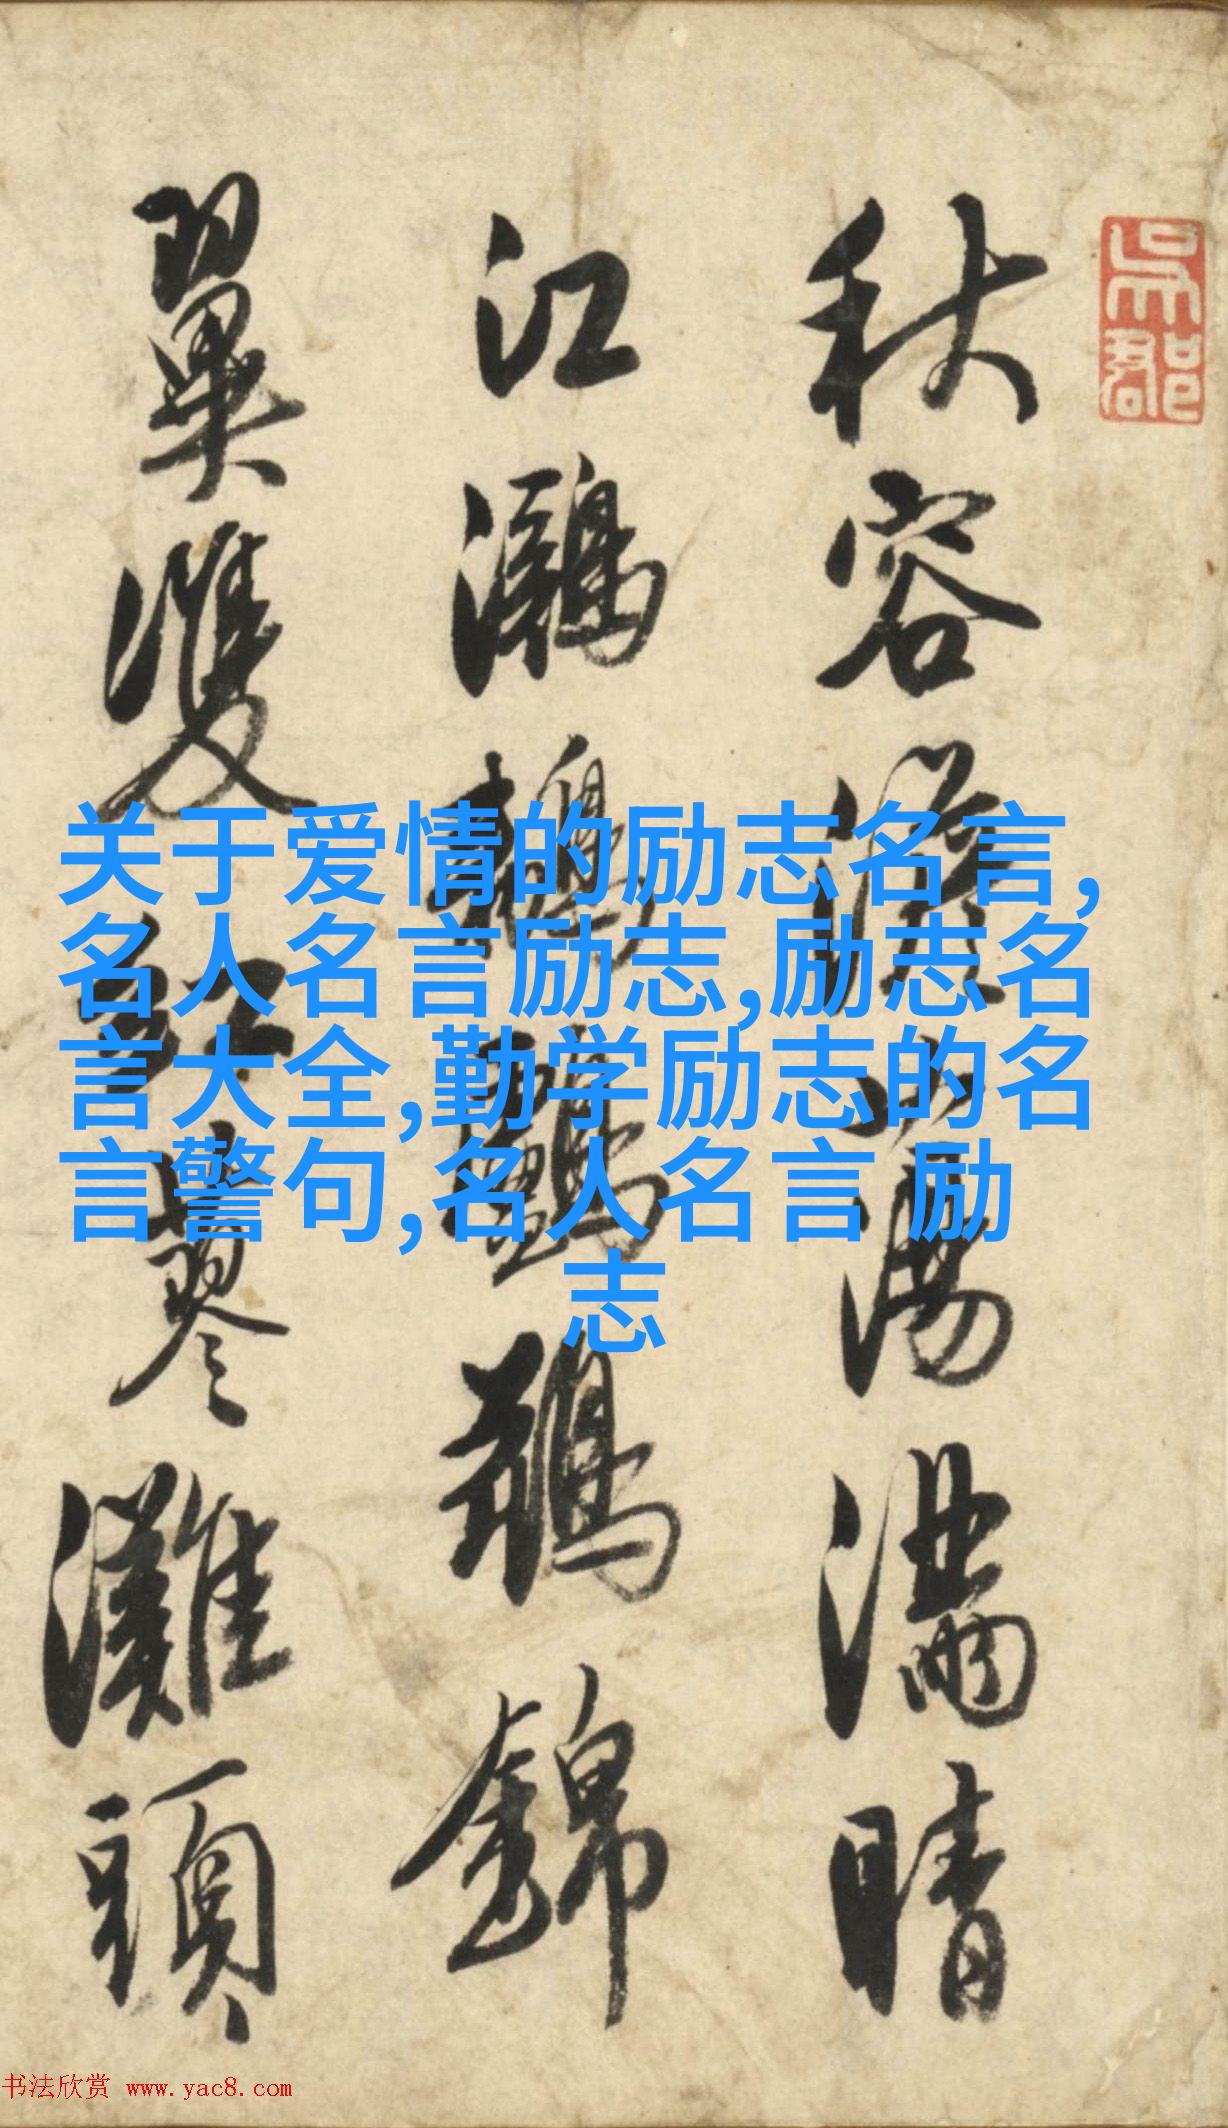 秋容淡荡满晴
江㶉鶒䴔䴖錦
翼雙紅蓼灘頭
吳郡
关于爱情的励志名言,
名人名言励志,励志名
言大全,勤学励志的名
言警句,名人名言 励
志
书法欣赏 www.yac8.com